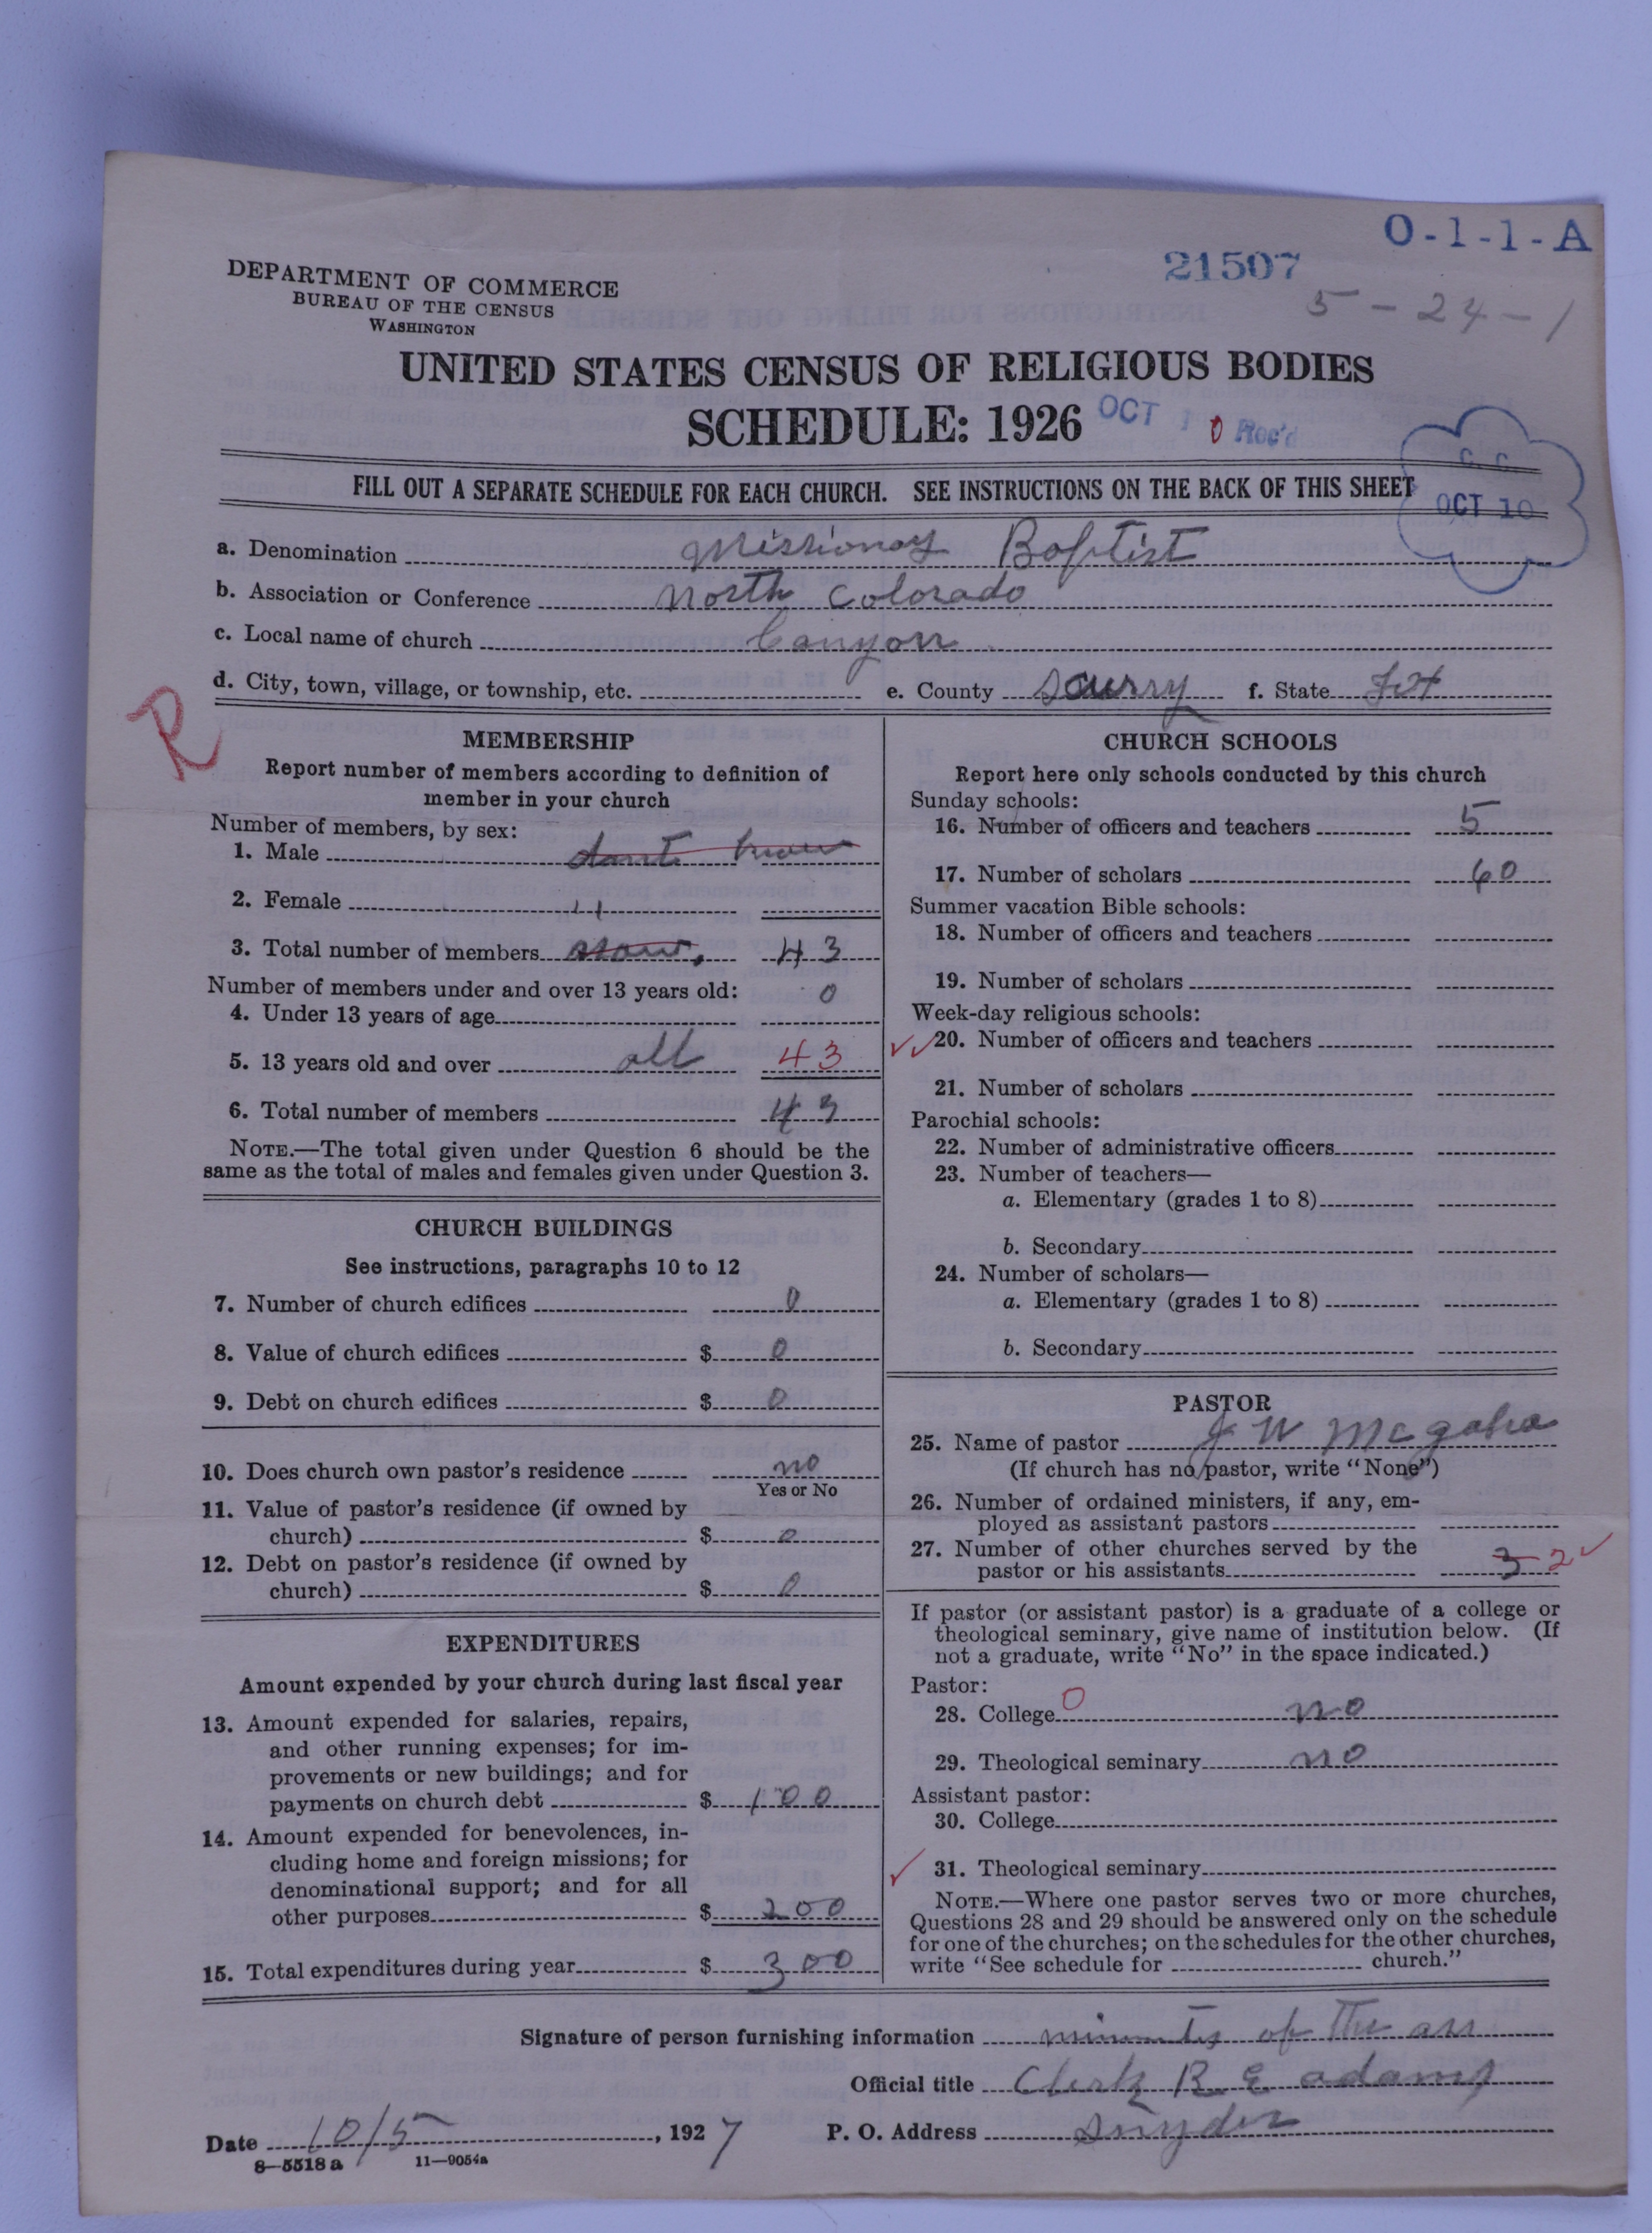 O-1-1-A
21507
5-24-1
DEPARTMENT OF COMMERCE
BUREAU OF THE CENSUS
WASHINGTON
UNITED STATES CENSUS OF RELIGIOUS BODIES
SCHEDULE: 1926
OCT 10 Rec'd
C. C.
OCT 10
FILL OUT A SEPARATE SCHEDULE FOR EACH CHURCH. SEE INSTRUCTIONS ON THE BACK OF THIS SHEET
a. Denomination Missionary Baptist
b. Association or Conference North Colorado
c. Local name of church Canyon
d. City, town, village, or township, etc. e. County Scurry f. State Tex
R
MEMBERSHIP
Report number of members according to definition of
member in your church
Number of members, by sex:
1. Male dont know
2. Female 11
3. Total number of members 43
Number of members under and over 13 years old:
4. Under 13 years of age 0
5. 13 years old and over all 43
6. Total number of members 43
NOTE.—The total given under Question 6 should be the
same as the total of males and females given under Question 3.
CHURCH BUILDINGS
See instructions, paragraphs 10 to 12
7. Number of church edifices 0
8. Value of church edifices $ 0
9. Debt on church edifices $ 0
10. Does church own pastor's residence no
Yes or No
11. Value of pastor's residence (if owned by
church) $ 0
12. Debt on pastor's residence (if owned by
church) $ 0
EXPENDITURES
Amount expended by your church during last fiscal year
13. Amount expended for salaries, repairs,
and other running expenses; for im-
provements or new buildings; and for
payments on church debt $ 100
14. Amount expended for benevolences, in-
cluding home and foreign missions; for
denominational support; and for all
other purposes $ 200
15. Total expenditures during year $ 300
CHURCH SCHOOLS
Report here only schools conducted by this church
Sunday schools:
16. Number of officers and teachers 5
17. Number of scholars 60
Summer vacation Bible schools:
18. Number of officers and teachers
19. Number of scholars
Week-day religious schools:
20. Number of officers and teachers
21. Number of scholars
Parochial schools:
22. Number of administrative officers
23. Number of teachers—
a. Elementary (grades 1 to 8)
b. Secondary
24. Number of scholars—
a. Elementary (grades 1 to 8)
b. Secondary
PASTOR
25. Name of pastor J W McGaha
(If church has no pastor, write "None")
26. Number of ordained ministers, if any, em-
ployed as assistant pastors
27. Number of other churches served by the
pastor or his assistants 3 2
If pastor (or assistant pastor) is a graduate of a college or
theological seminary, give name of institution below. (If
not a graduate, write "No" in the space indicated.)
Pastor:
28. College 0 no
29. Theological seminary no
Assistant pastor:
30. College
31. Theological seminary
NOTE.—Where one pastor serves two or more churches,
Questions 28 and 29 should be answered only on the schedule
for one of the churches; on the schedules for the other churches,
write "See schedule for church."
Signature of person furnishing information minutes of the ass
Official title Clerk R E Adams
Date 10/5, 1927 P. O. Address Snyder
8—5518 a 11—9054a